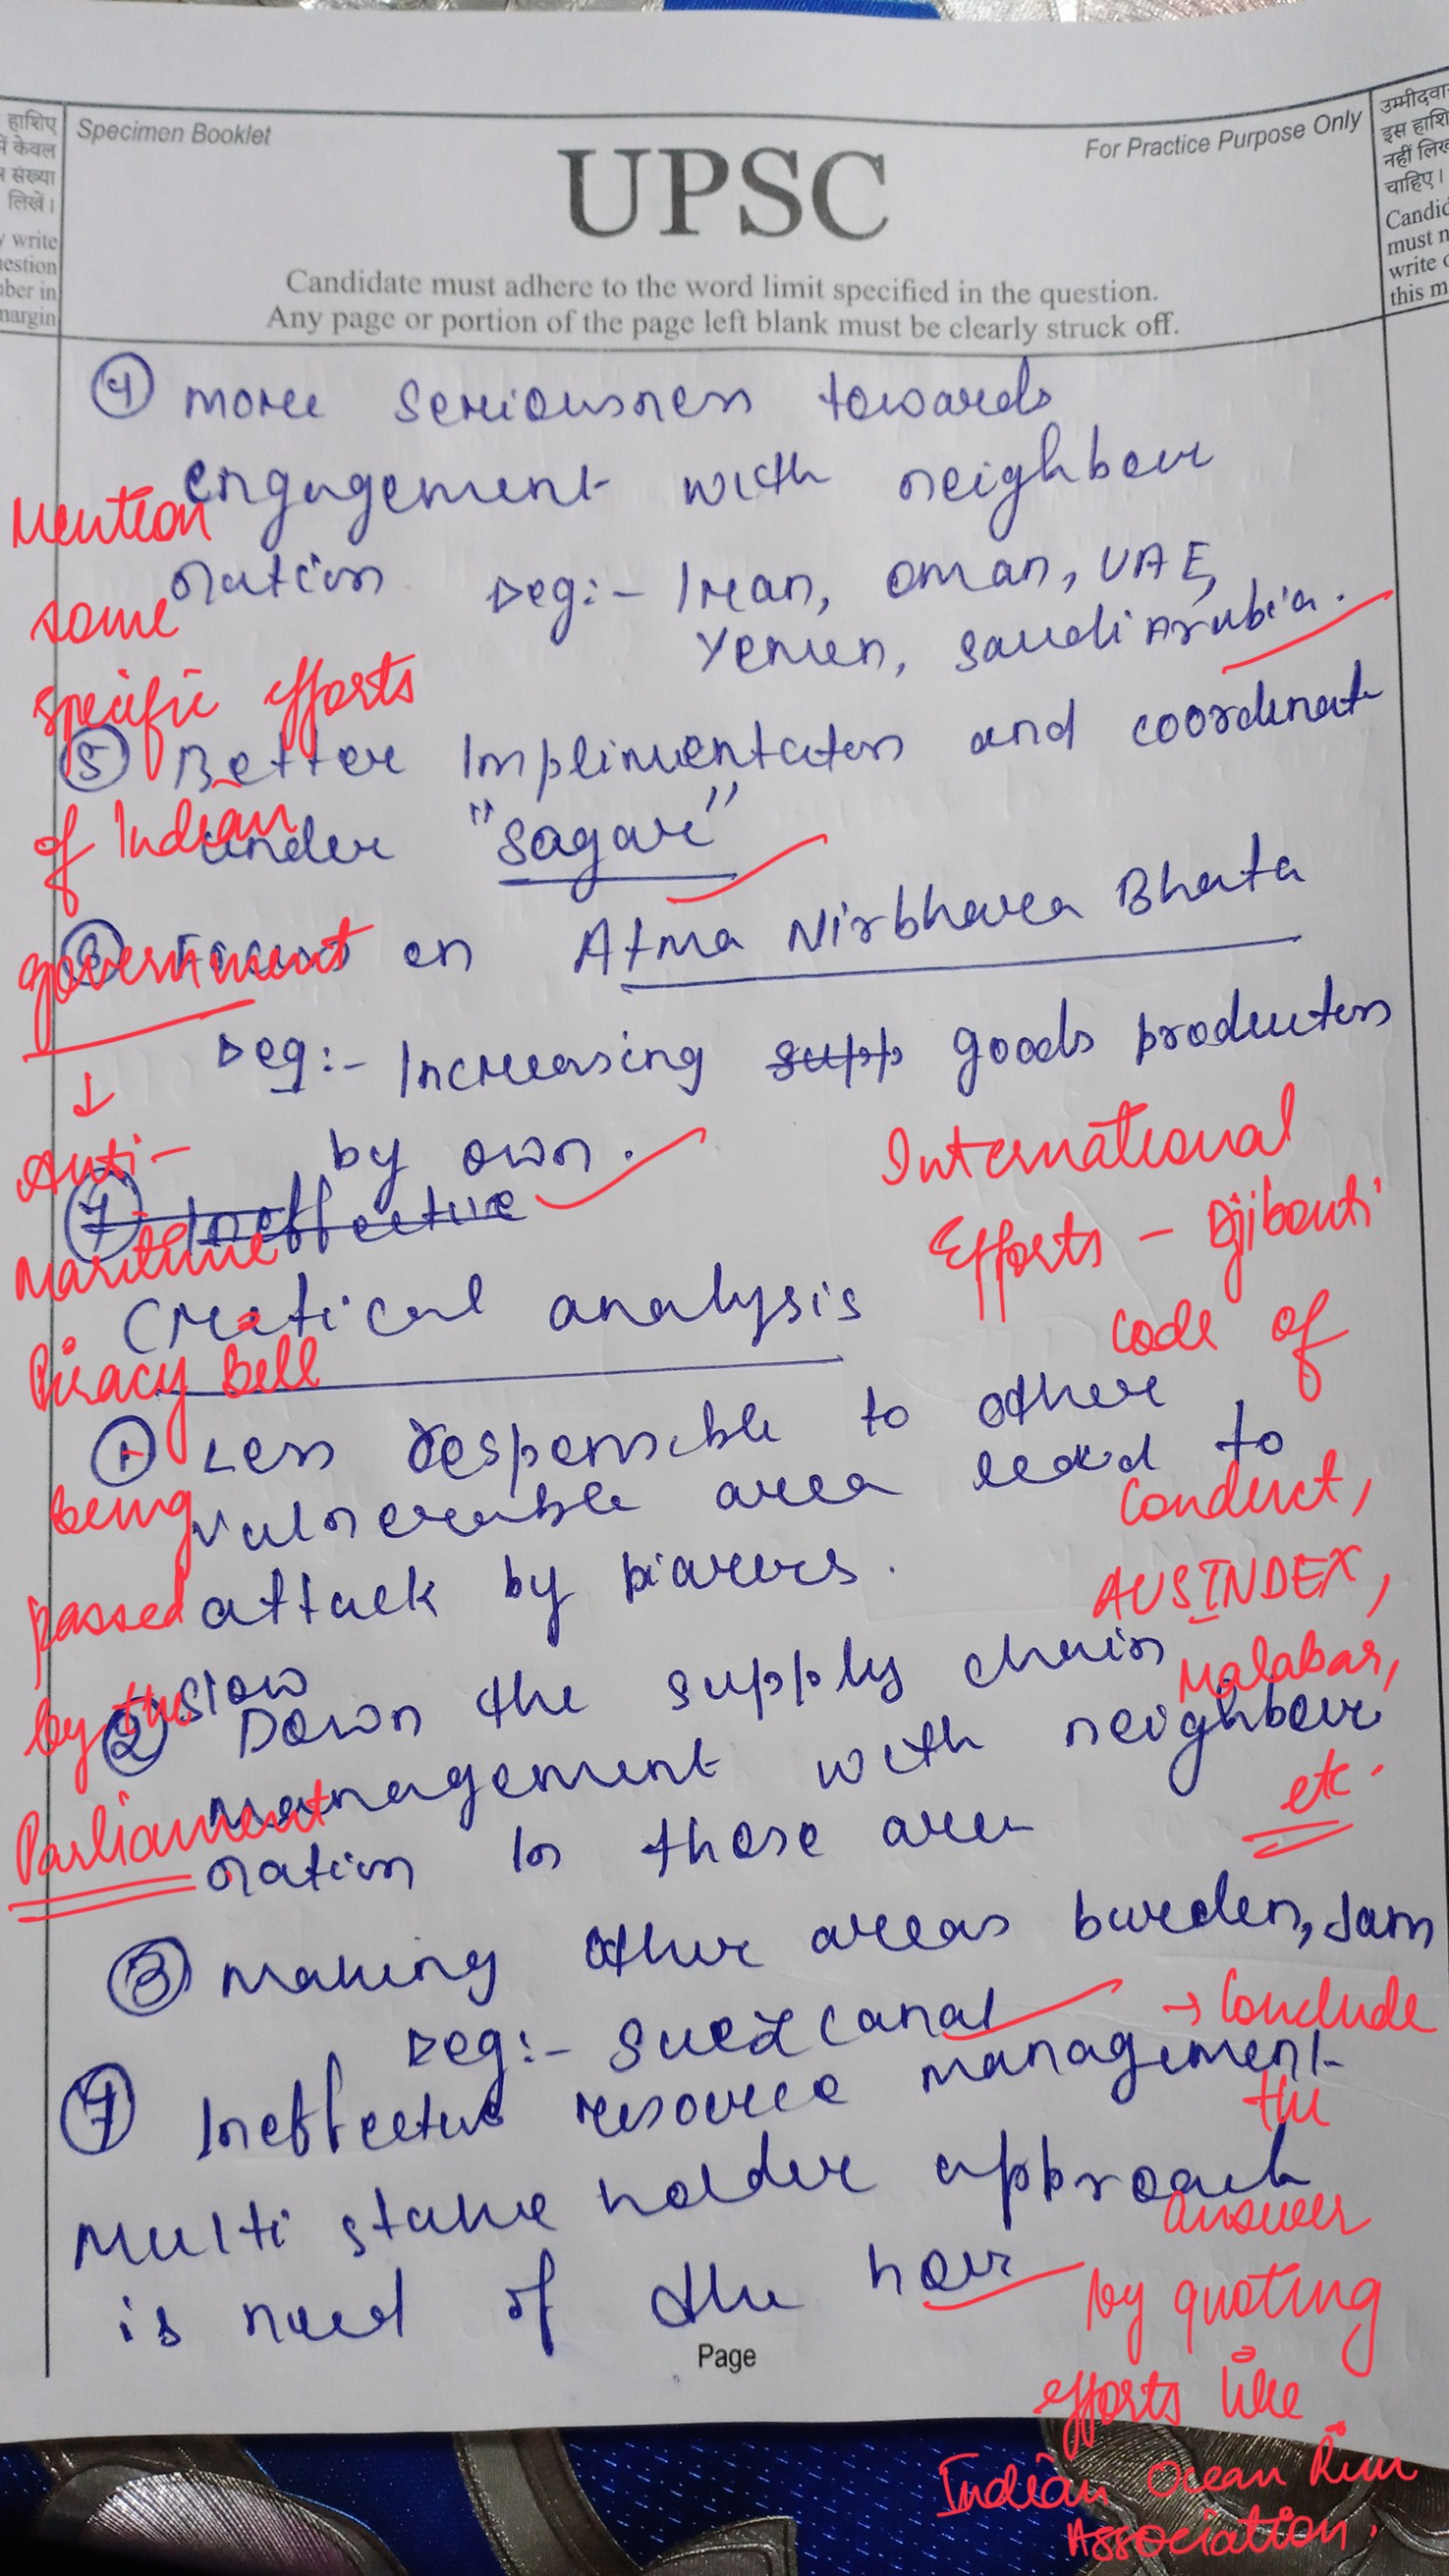 हाशिए
में केवल
संख्या
लिखें।
write
question
number in
margin
Specimen Booklet
UPSC
For Practice Purpose Only
उम्मीदवार
इस हाशि
नहीं लिख
चाहिए।
Candid
must n
write o
this m
Candidate must adhere to the word limit specified in the question.
Any page or portion of the page left blank must be clearly struck off.
④ more seriousness towards
engagement with neighbour
nation eg:- Iran, Oman, UAE,
Yemen, Saudi Arabia.
⑤ Better Implimentation and coordinat
under "Sagar"
⑥ Focus on Atma Nirbhara Bharta
eg:- Increasing supp goods production
by own.
⑦ Ineffective
Critical analysis
① Less responsible to other
vulnerable area lead to
attack by
② Slow Down the supply chain
management with neighbour
nation In these area
③ making other areas burden, Jam
eg:- Suez canal
④ Ineffective resource management
Multi stake holder approach
is need of the hour
Page
Mention
some
specific efforts
of Indian
government
↓
Anti-
Maritime
Piracy Bill
being
passed
by the
Parliament
International
Efforts - Djibouti
code of
conduct,
AUSINDEX,
Malabar,
etc.
→ Conclude
the
answer
by quoting
efforts like
Indian Ocean Rim
Association.